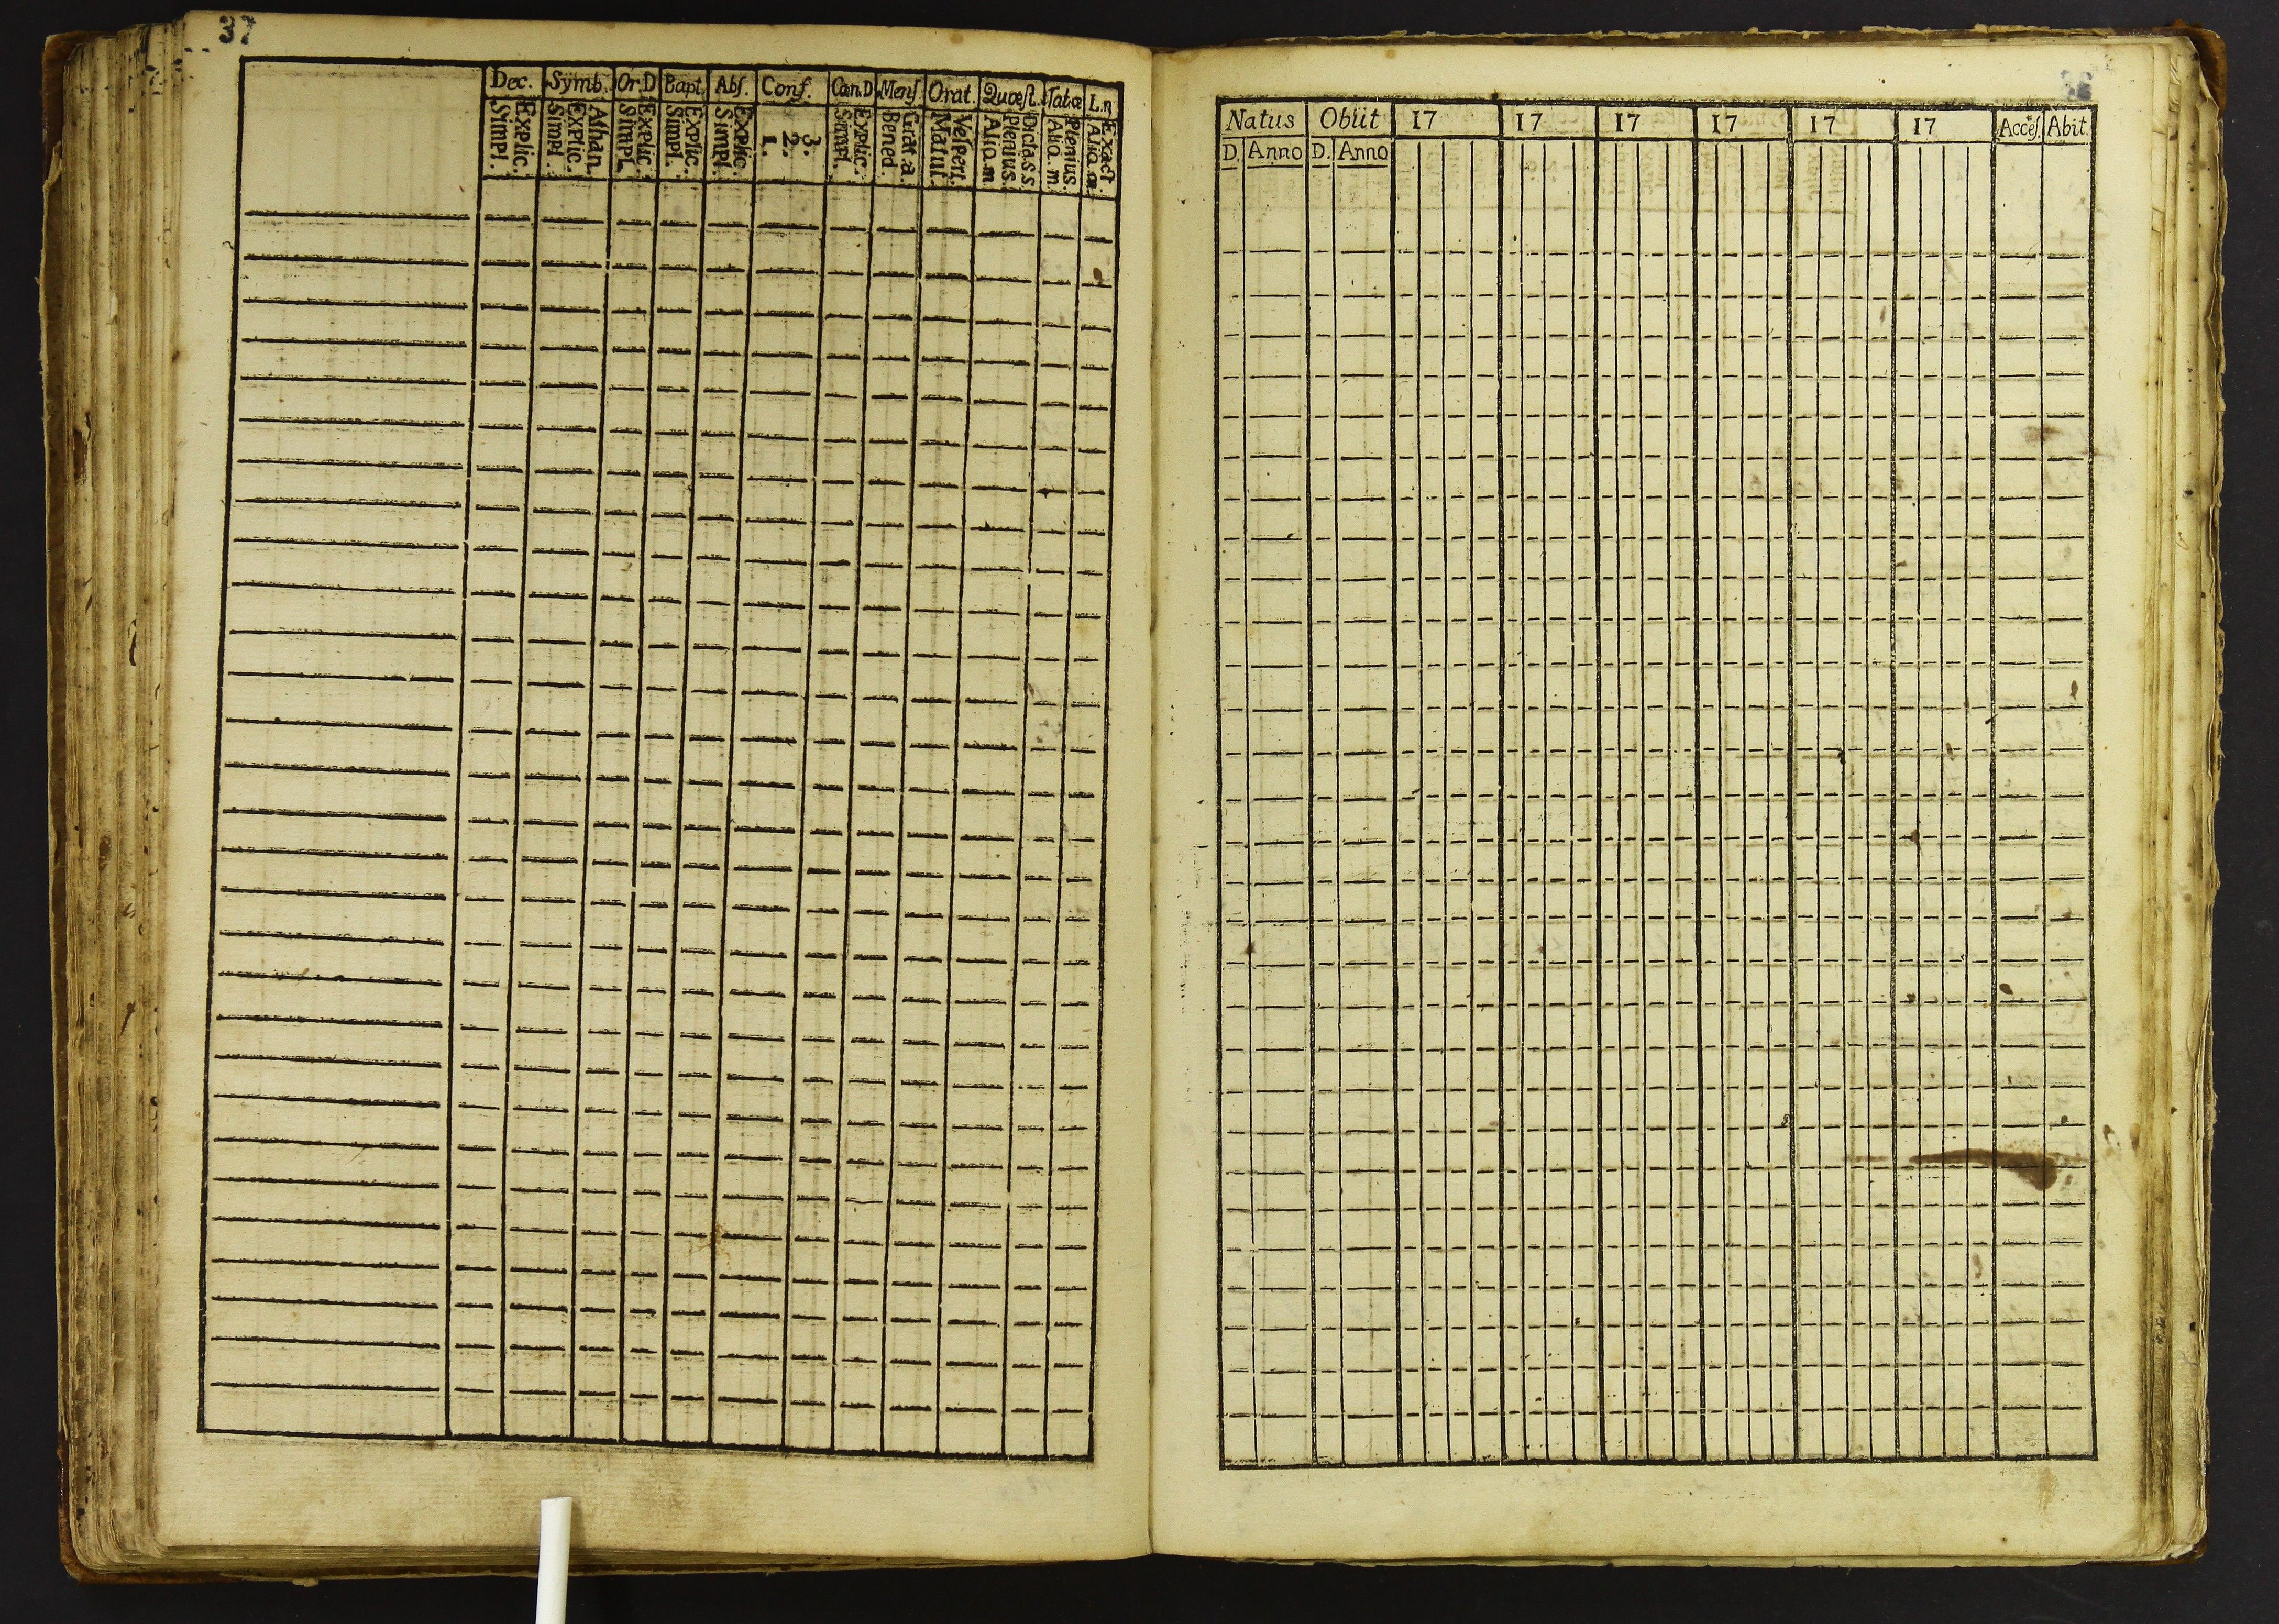 37
Dec. Symb. Or.D Bapt. Abſ. Conf. Cœn.D Menſ. Orat. Quæſt. Tabœ L.n
Simpl. Explic. Simpl. Explic. Athan. Simpl. Explic. Simpl. Explic. Simpl. Explic. 1. 2. 3. Simpl. Explic. Bened. Grat. a. Matut. Veſpert. Alio. m Plenius. Dicla.s.s. Alio. m. Plenius. Alio. m. Exact.
Natus Obiit 17 17 17 17 17 17 Acceſ. Abit.
D. Anno D. Anno